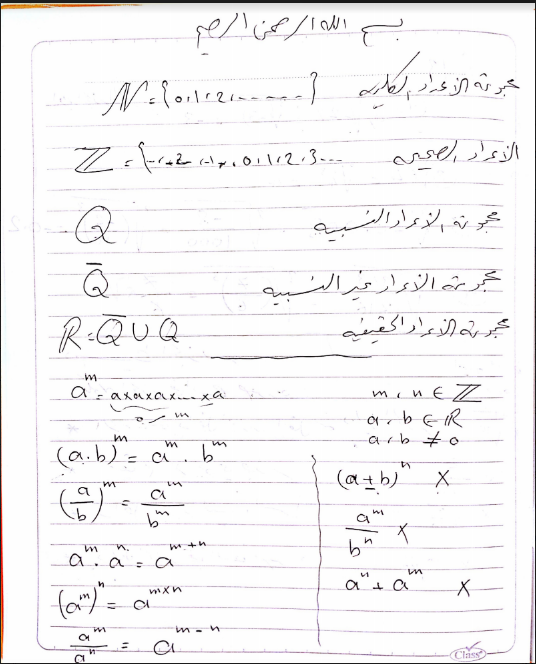 بسم الله الرحمن الرحيم
مجموعة الأعداد الكلية N = {0, 1, 2, ......}
الأعداد الصحيحة Z = {-, -2, -1, 0, 1, 2, 3...
مجموعة الأعداد النسبية Q
مجموعة الأعداد غير النسبية Q̄
مجموعة الأعداد الحقيقية R = Q̄ ∪ Q
a^m = a×a×a×a×...×a
m
m, n ∈ Z
a, b ∈ R
a, b ≠ 0
(a·b)^m = a^m · b^m
(a/b)^m = a^m / b^m
a^m · a^n = a^(m+n)
(a^m)^n = a^(m×n)
a^m / a^n = a^(m-n)
(a ± b)^n X
a^m / b^n X
a^n + a^m X
Class